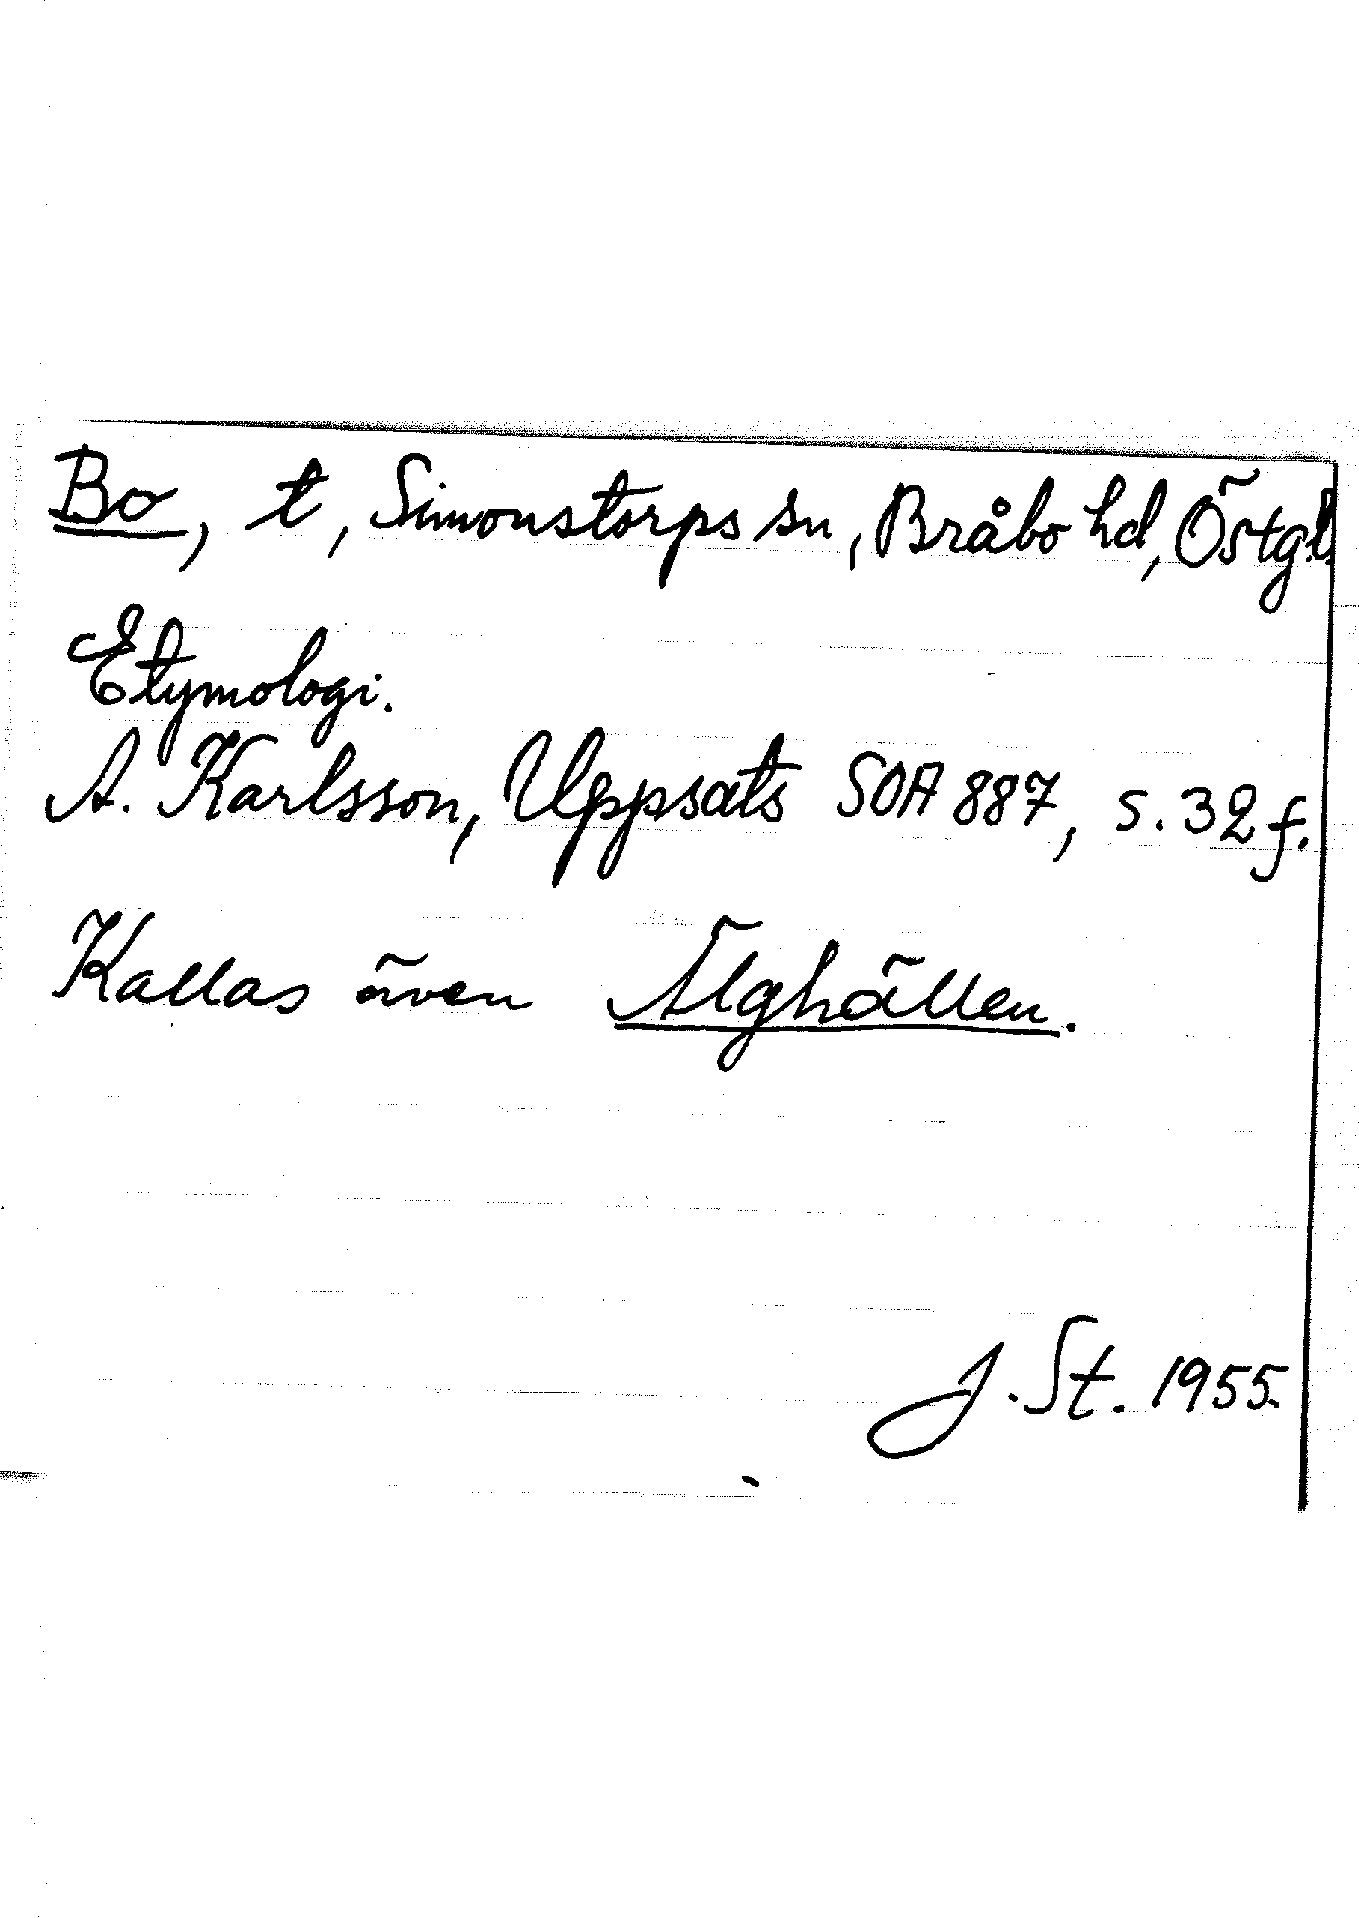 Bo, t, Simonstorps sn, Bråbo hd, Östgl.
Etymologi.
A. Karlsson, Uppsats SOA 887, s. 32 f.
Kallas även Älghällen.
J. St. 1955.